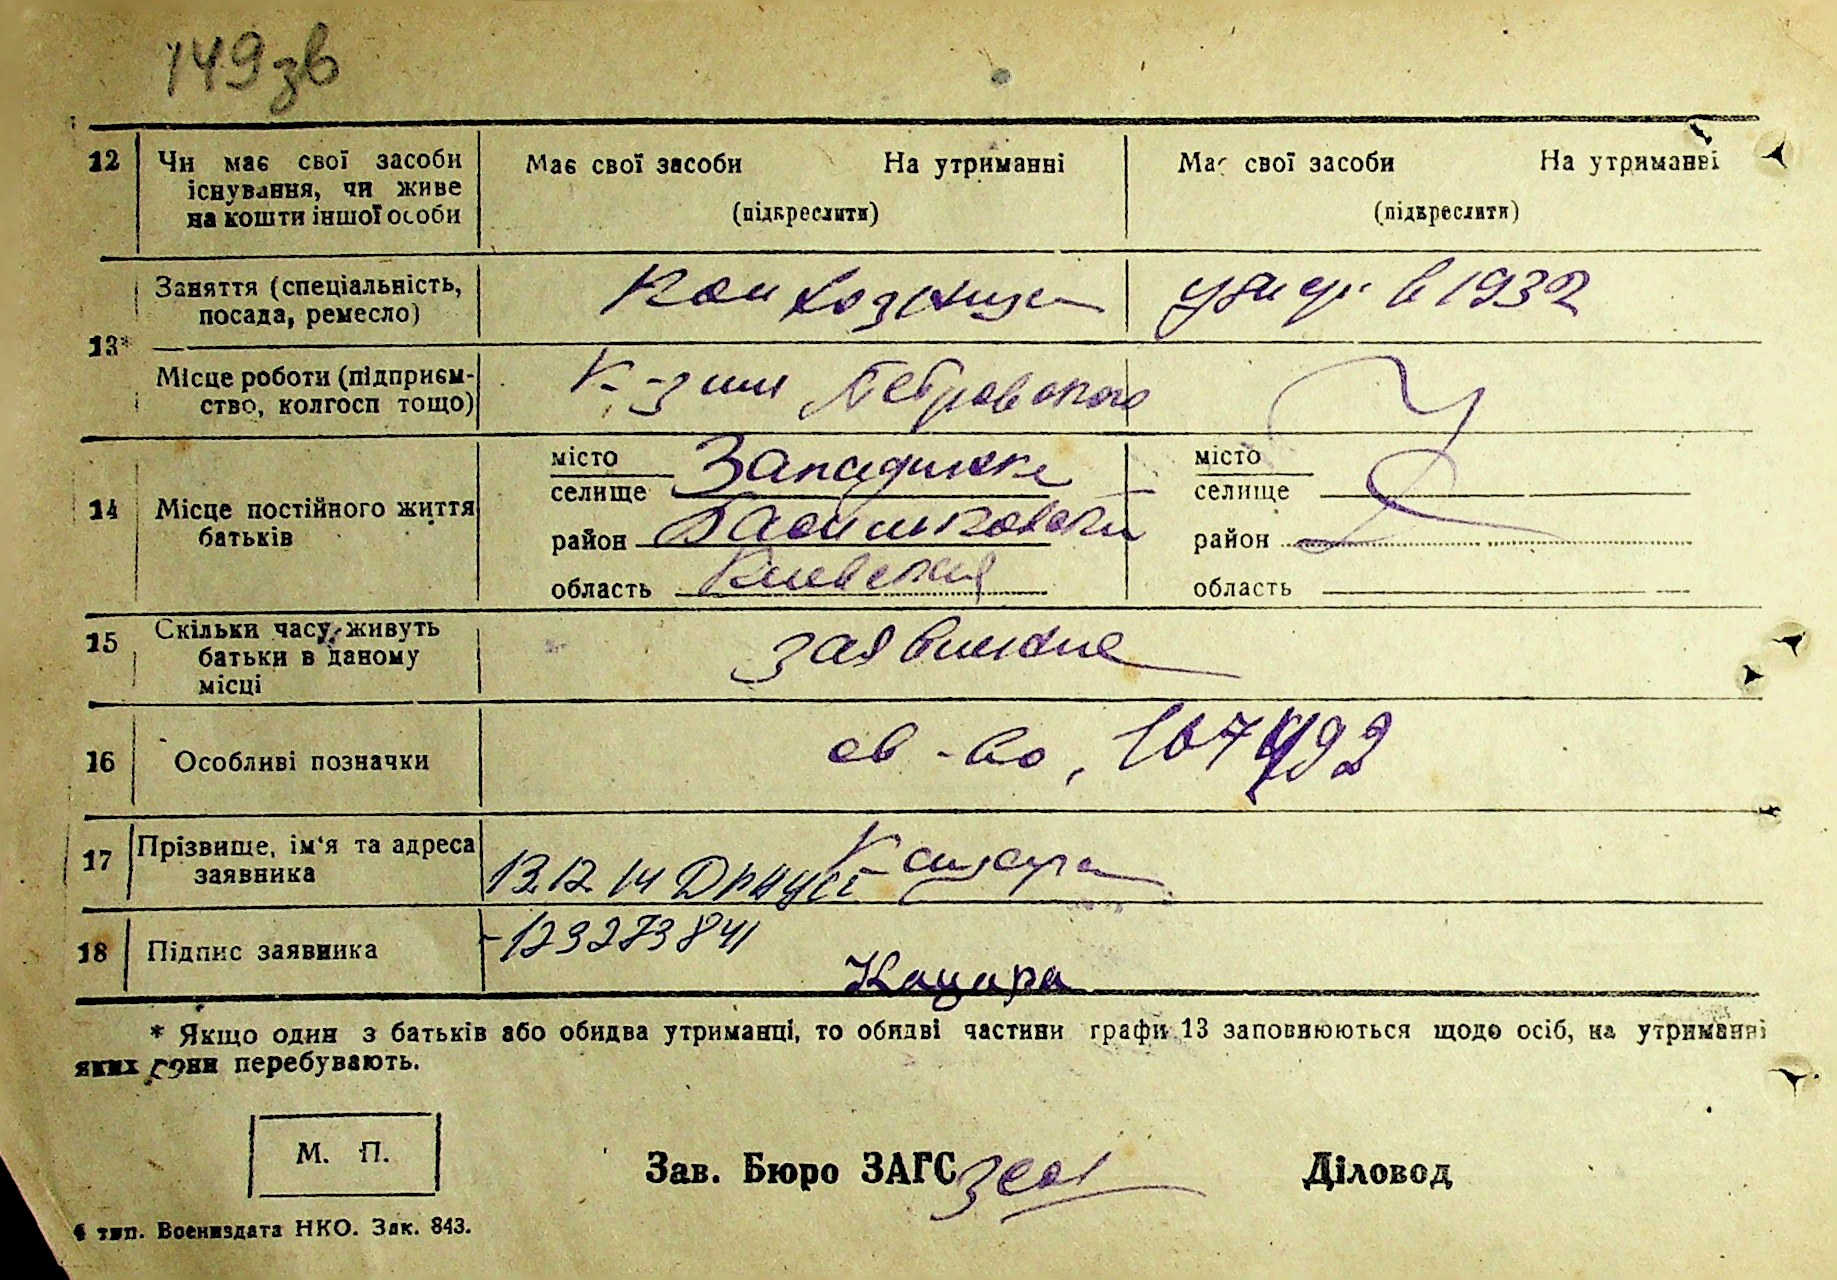 149зв
12 Чи має свої засоби існування, чи живе на кошти іншої особи
Має свої засоби На утриманні
(підкреслити)
Має свої засоби На утриманні
(підкреслити)
13*
Заняття (спеціальність, посада, ремесло)
Колхозница
в 1932
Місце роботи (підприєм-
ство, колгосп тощо)
К-з им Петровского
14 Місце постійного життя батьків
місто
селище Западинка
район Васильковский
область Киевская
місто
селище
район
область
15 Скільки часу живуть
батьки в даному
місці
16 Особливі позначки
св-во, 107492
17 Прізвище, ім'я та адреса
заявника
13.12.14 Кацара
18 Підпис заявника
-123273841
Кацара
* Якщо один з батьків або обидва утриманці, то обидві частини графи 13 заповнюються щодо осіб, на утриманні
яких вони перебувають.
М. П.
Зав. Бюро ЗАГС
Діловод
6 тип. Воениздата НКО. Зак. 843.